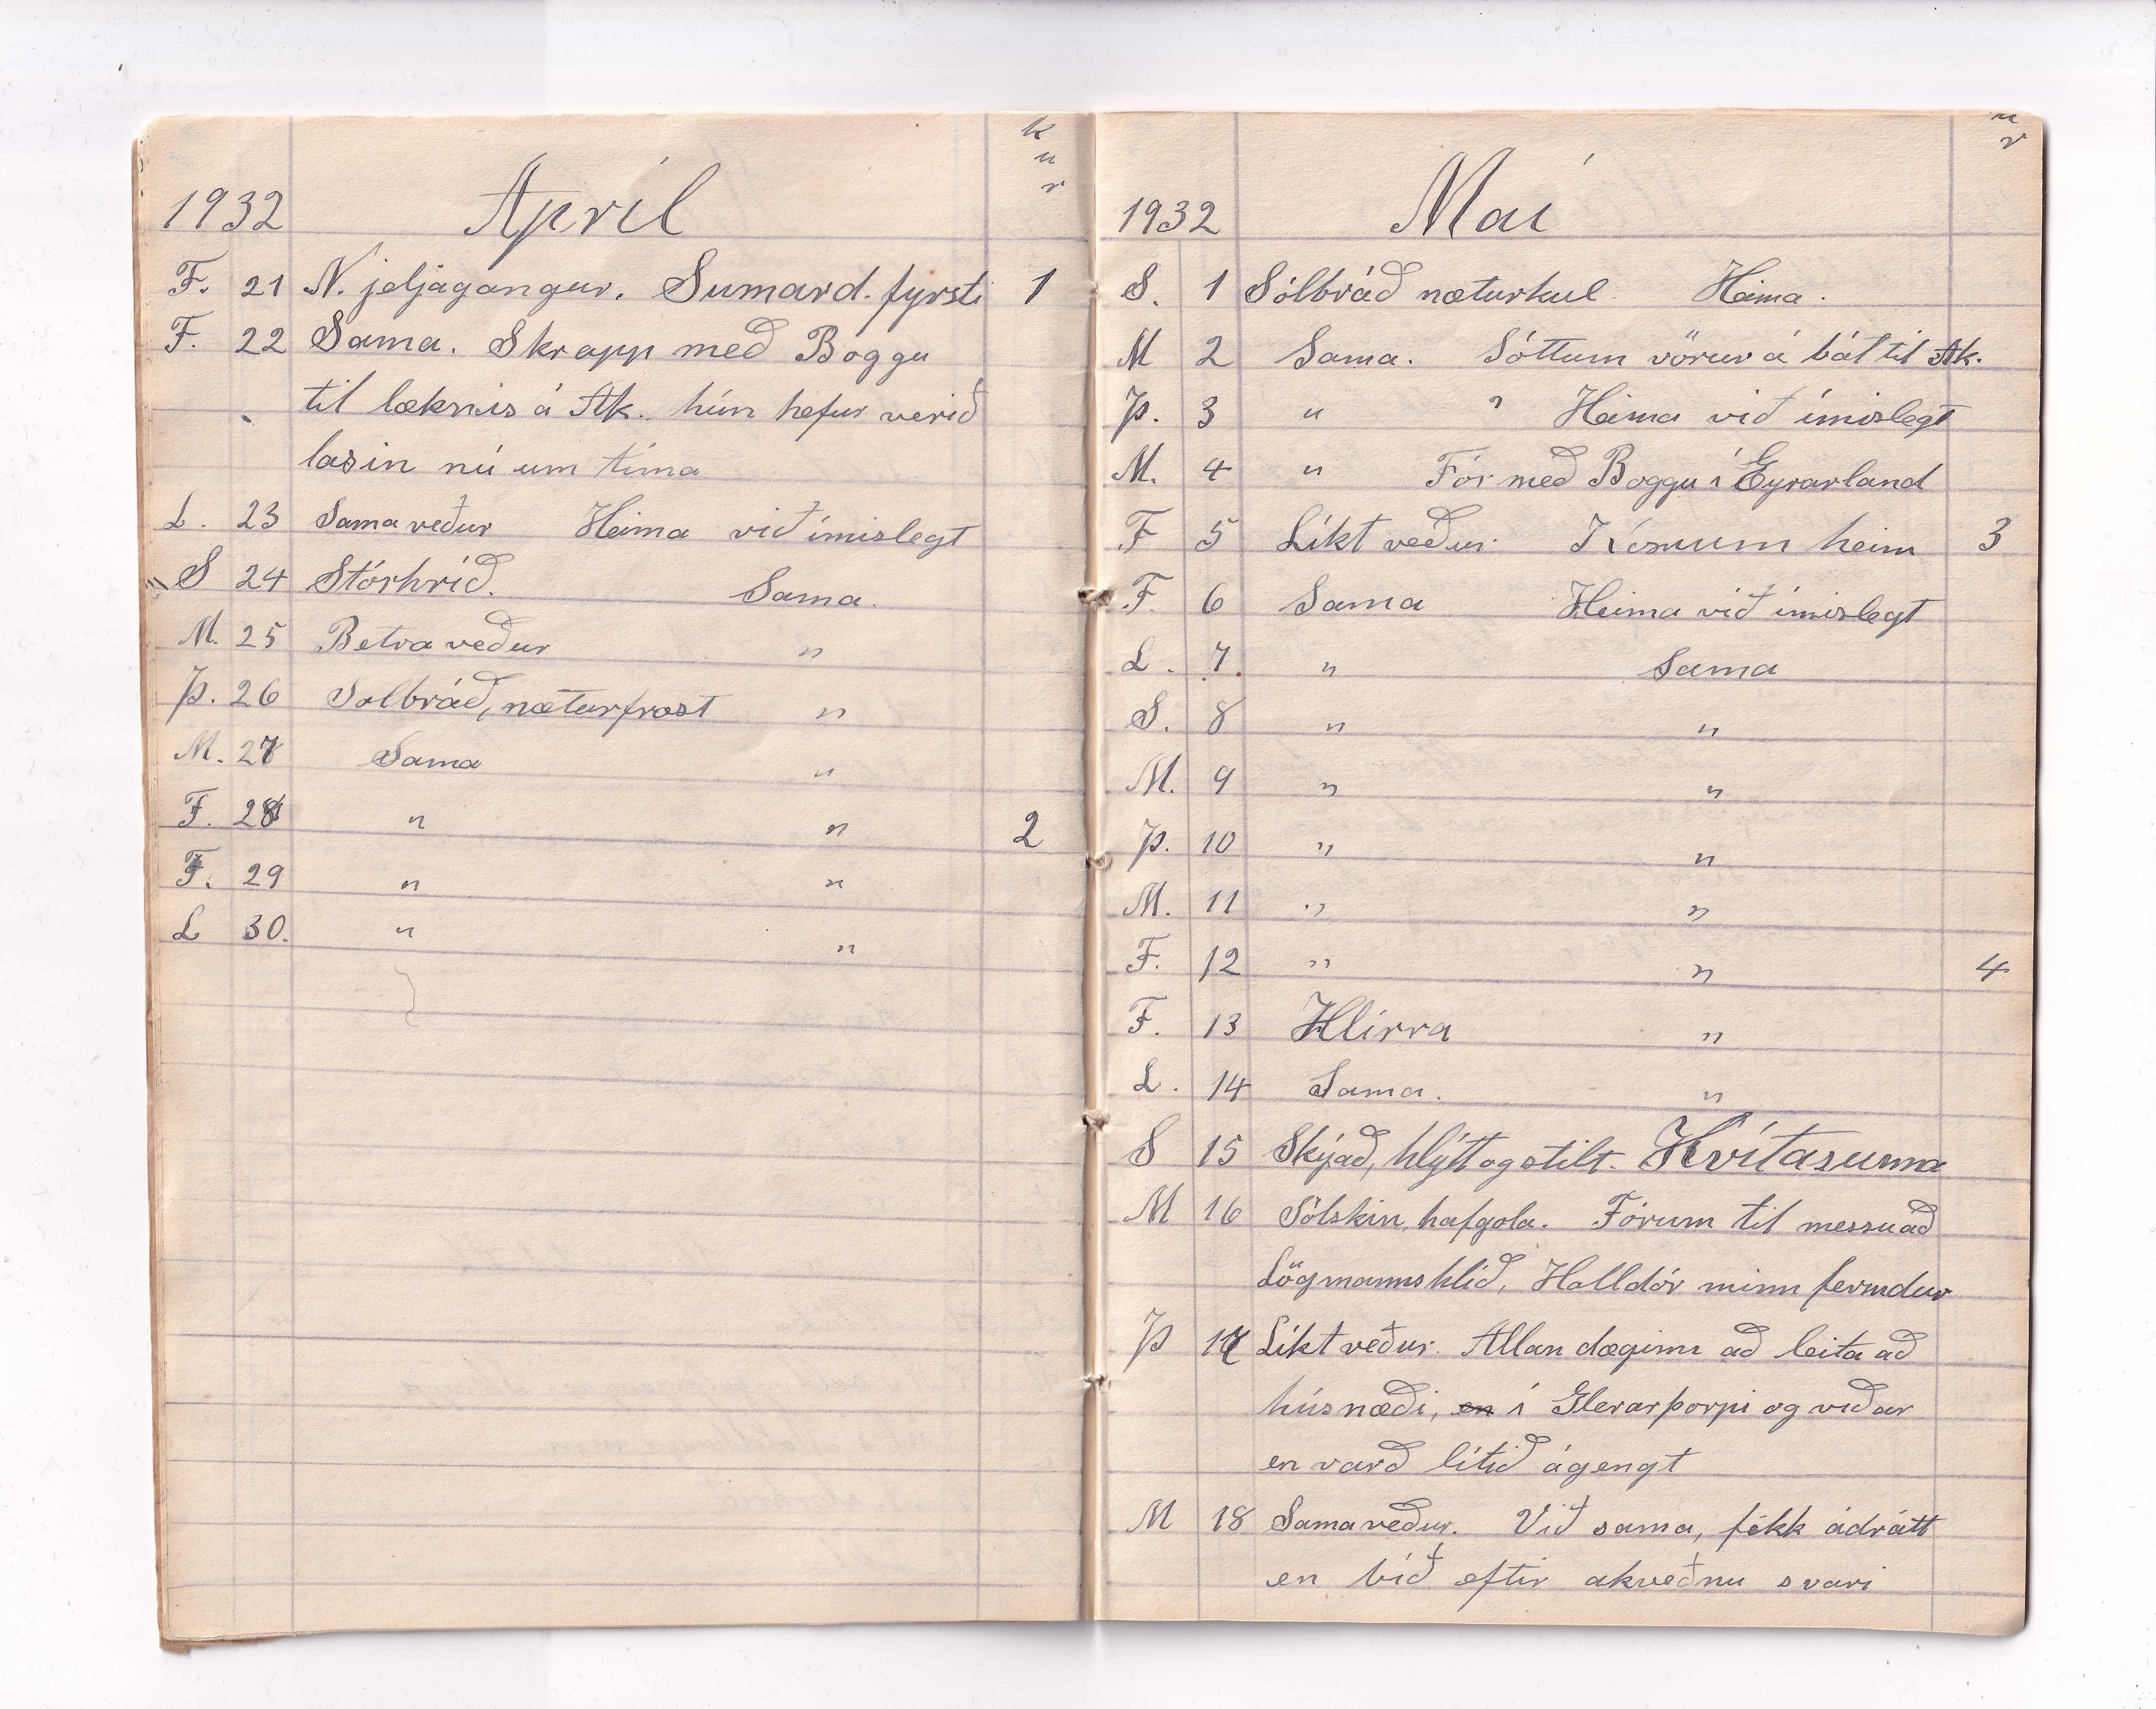 k
u
r
1932 Apríl
F. 21 N. jeljagangur. Sumard. fyrsti 1
F. 22 Sama. Skrapp með Boggu
til læknis á Ak. hún hefur verið
lasin nú um tíma
L. 23 Sama veður Heima við ímislegt
S 24 Stórhríð. Sama.
M. 25 Betra veður "
Þ. 26 Solbráð, næturfrost "
M. 27 Sama "
F. 28 " " 2
F. 29 " "
L 30. " "
u
r
1932 Maí
S. 1 Sólbráð næturkul Heima.
M 2 Sama. Sóttum vörur á bát til Ak.
Þ. 3 " Heima við ímislegt
M. 4 " Fór með Boggu í Eyrarland
F 5 Líkt veður Komum heim 3
F. 6 Sama Heima við ímislegt
L. 7. " Sama
S. 8 " "
M. 9 " "
Þ. 10 " "
M. 11 " "
F. 12 " " 4
F. 13 Hlírra "
L. 14 Sama. "
S 15 Skýað, hlýtt og stilt. Hvítasunna
M 16 Sólskin, hafgola. Fórum til messu að
Lögmannshlíð, Halldór minn fermdur
Þ 17 Líkt veður. Allan daginn að leita að
húsnæði, en í Glerarþorpi og víðar
en varð lítið ágengt
M 18 Sama veður. Við sama, fékk ádrátt
en bíð eftir akveðnu svari